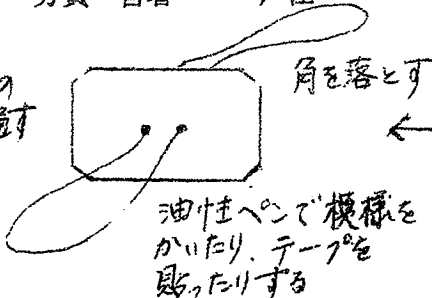 角を落とす
油性ペンで模様を
かいたり、テープを
貼ったりする